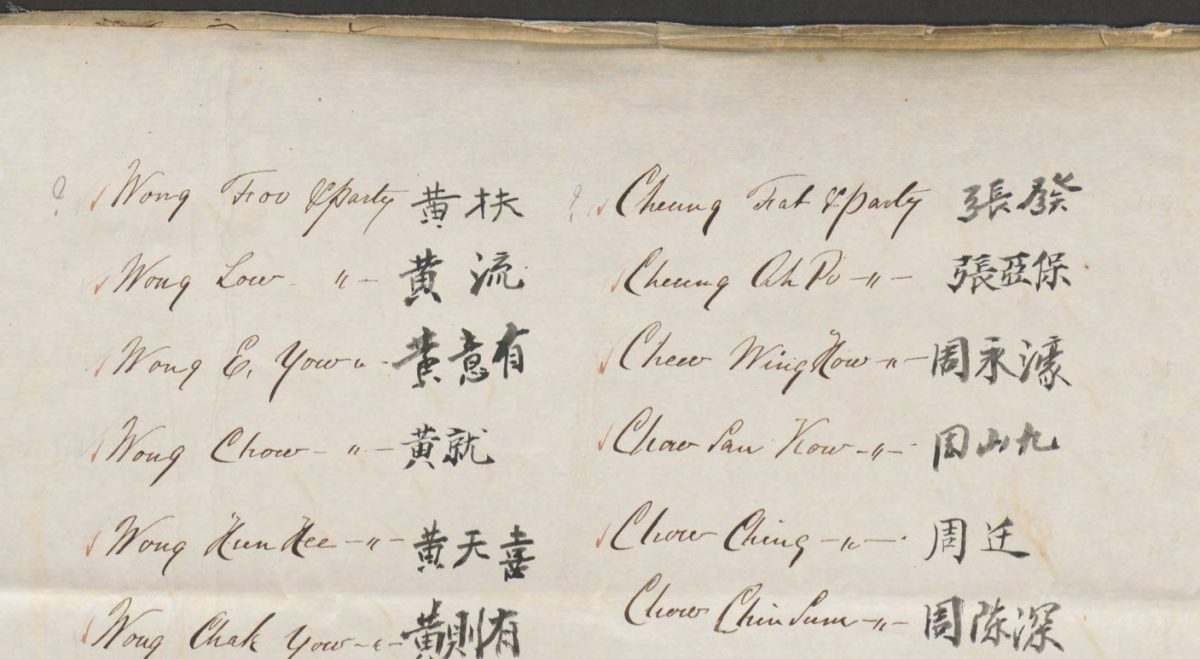 ? Wong Foo & party 黄扶
Wong Low " 黄流
Wong E. Yow " 黄意有
Wong Chow " 黄就
Wong Hun Hee " 黄天喜
Wong Chak Yow " 黄則有
? Cheung Fat & party 張發
Cheung Ah Po " 張亞保
Chew Wing How " 周永濠
Chow San Kow " 周山九
Chow Ching " 周廷
Chow Chin Sum " 周陈深